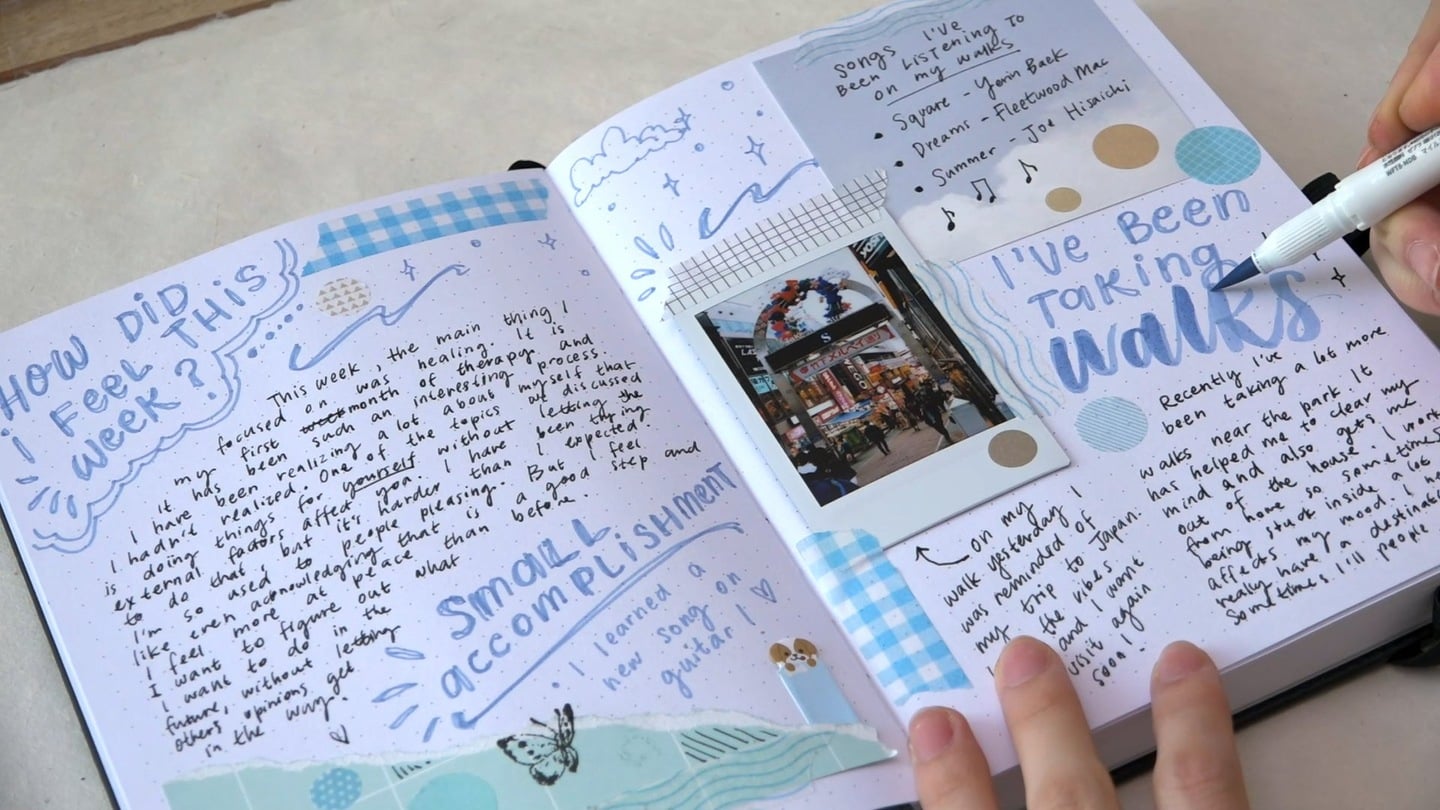 HOW DiD
i FEEL THIS
WEEK?
This week, the main thing I
focused on was healing. It is
my first month of therapy and
it has been such an interesting process.
I have been realizing a lot about myself that
I hadn't realized. One of the topics we discussed
is doing things for yourself without letting the
external factors affect you. I have been trying
to do that, but it's harder than I expected.
I'm so used to people pleasing. But I feel
like even acknowledging that is a good step and
I feel more at peace than before.
I want to figure out what
I want to do in the
future, without letting
others opinions get
in the way.
SMALL
accomplishment
• I learned a
new song on
guitar!
Songs I've
Been Listening To
on my walks
• Square - Yerin Baek
• Dreams - Fleetwood Mac
• Summer - Joe Hisaichi
I've Been
Taking
walks
on my
walk yesterday I
was reminded of
my trip to Japan.
the vibes
and I want
visit again
soon!
Recently I've
been taking a lot more
walks near the park. It
has helped me to clear my
mind and also gets me
out of the house. I work
from home so sometimes
being stuck inside a lot
affects my mood. I
really have a
Sometimes I'll people